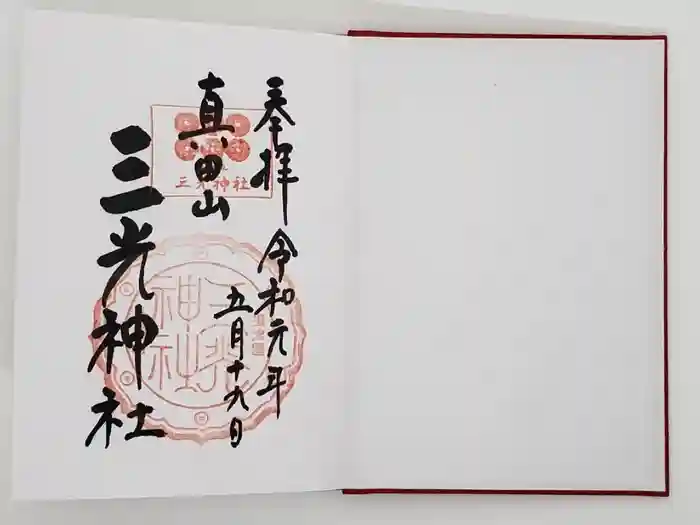 奉拝
令和元年
五月十九日
真田山
三光神社
三光神社